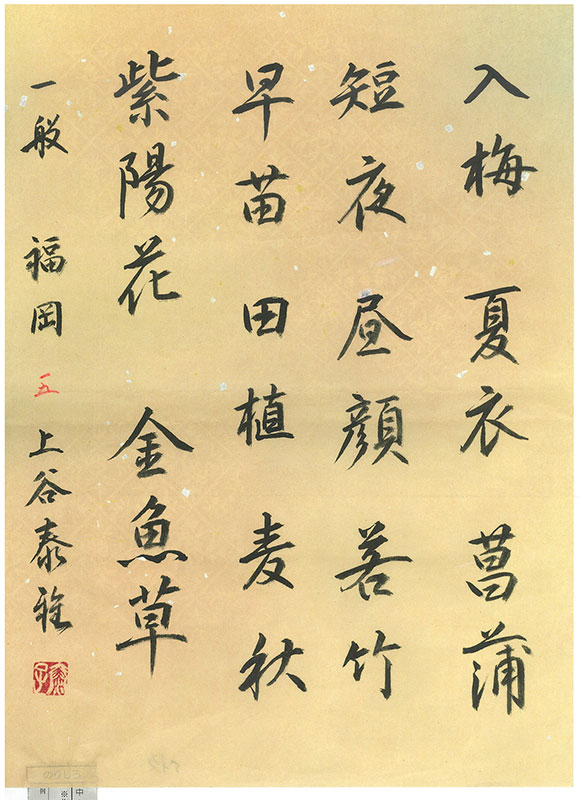 入梅 夏衣 菖蒲
短夜 昼顔 若竹
早苗 田植 麦秋
紫陽花 金魚草
一般 福岡 五 上谷泰雅
のりしろ
中
※
例